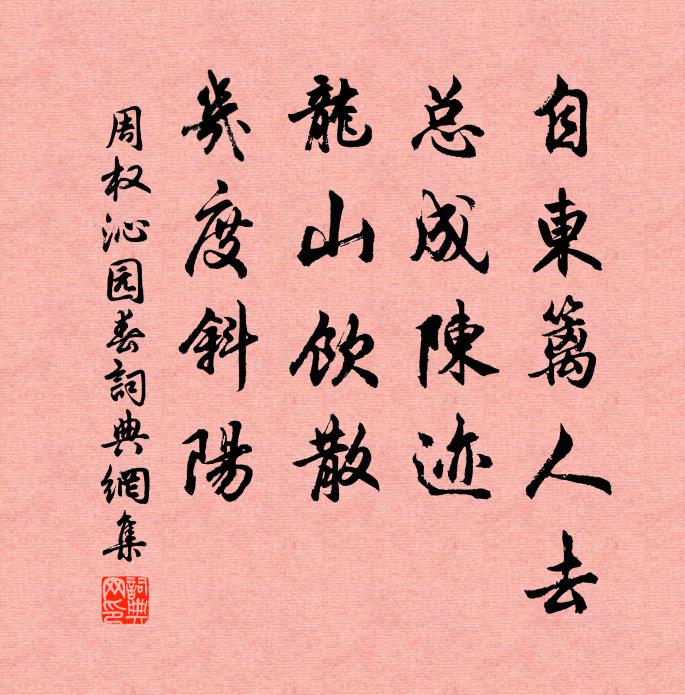 自東籬人去
总成陳迹
龍山飲散
幾度斜陽
周权沁园春詞典網集
詞典网印